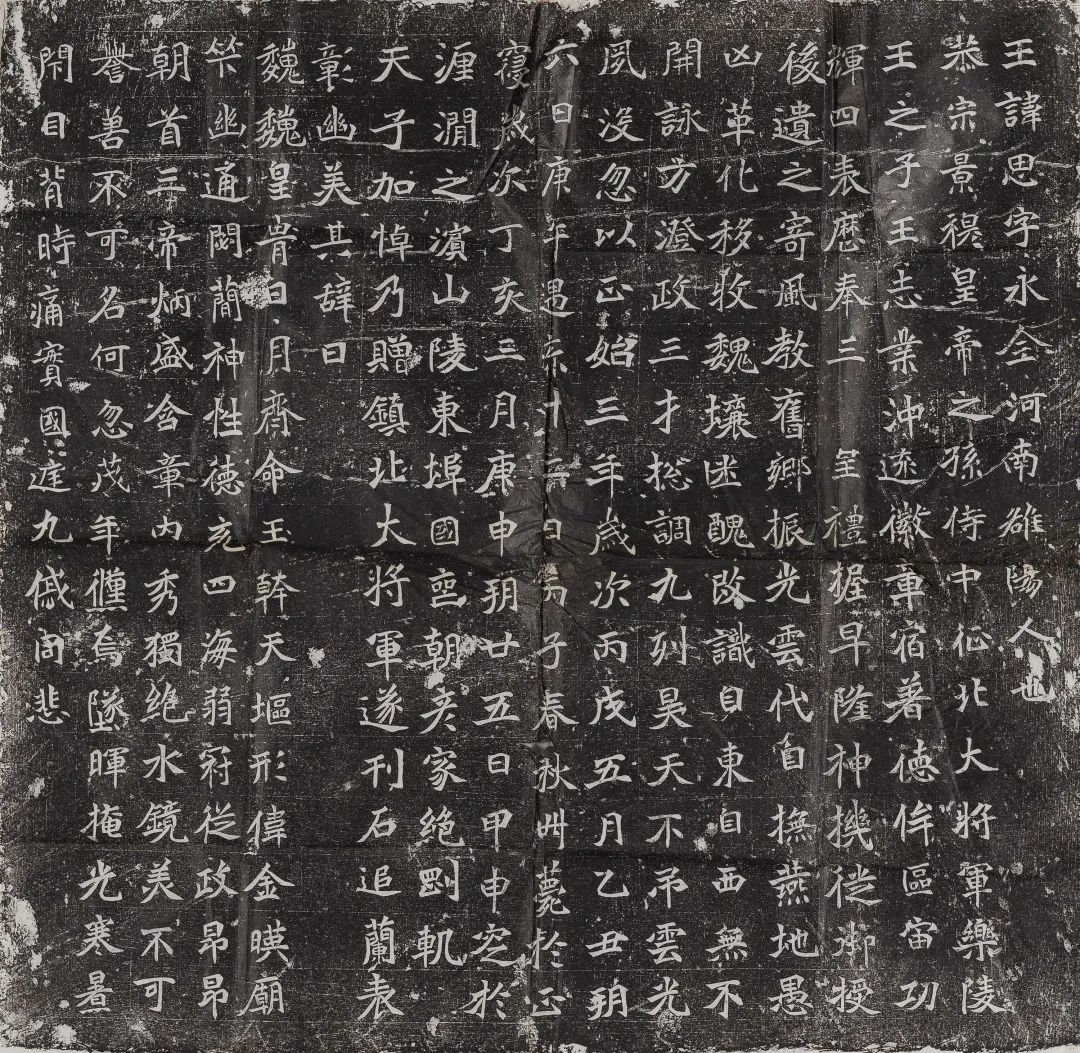 王諱思字永全河南雒陽人也
恭宗景穆皇帝之孫侍中征北大將軍樂陵
王之子王志業沖遠徽章宿著德侔區宙功
輝四表歷奉三呈禮握早隆神機從御授
後遺之寄風教舊鄉振光雲代自撫燕地愚
凶革化移牧魏壤迷醜改識自東自西無不
開詠方澄政三才揔調九列昊天不弔雲光
夙沒忽以正始三年歲次丙戌五月乙丑朔
六日庚午遇十二日丙子春秋卌薨於正
寢歲次丁亥三月庚申朔廿五日甲申窆於
湹澗之濱山陵東埠國喪朝彥家絕剛軌
天子加悼乃贈鎮北大將軍遂刊石追蘭表
彰幽美其辭曰
巍巍皇胄日月齊命王幹天堀形偉金暎廟
笇幽通閟蕳神性德充四海弱冠從政昂昂
朝首三帝炳盛含章內秀獨絕水鏡美不可
譽善不可名何忽茂年殲焉墜暉掩光寒暑
閇目背時痛實國庭九戚同悲